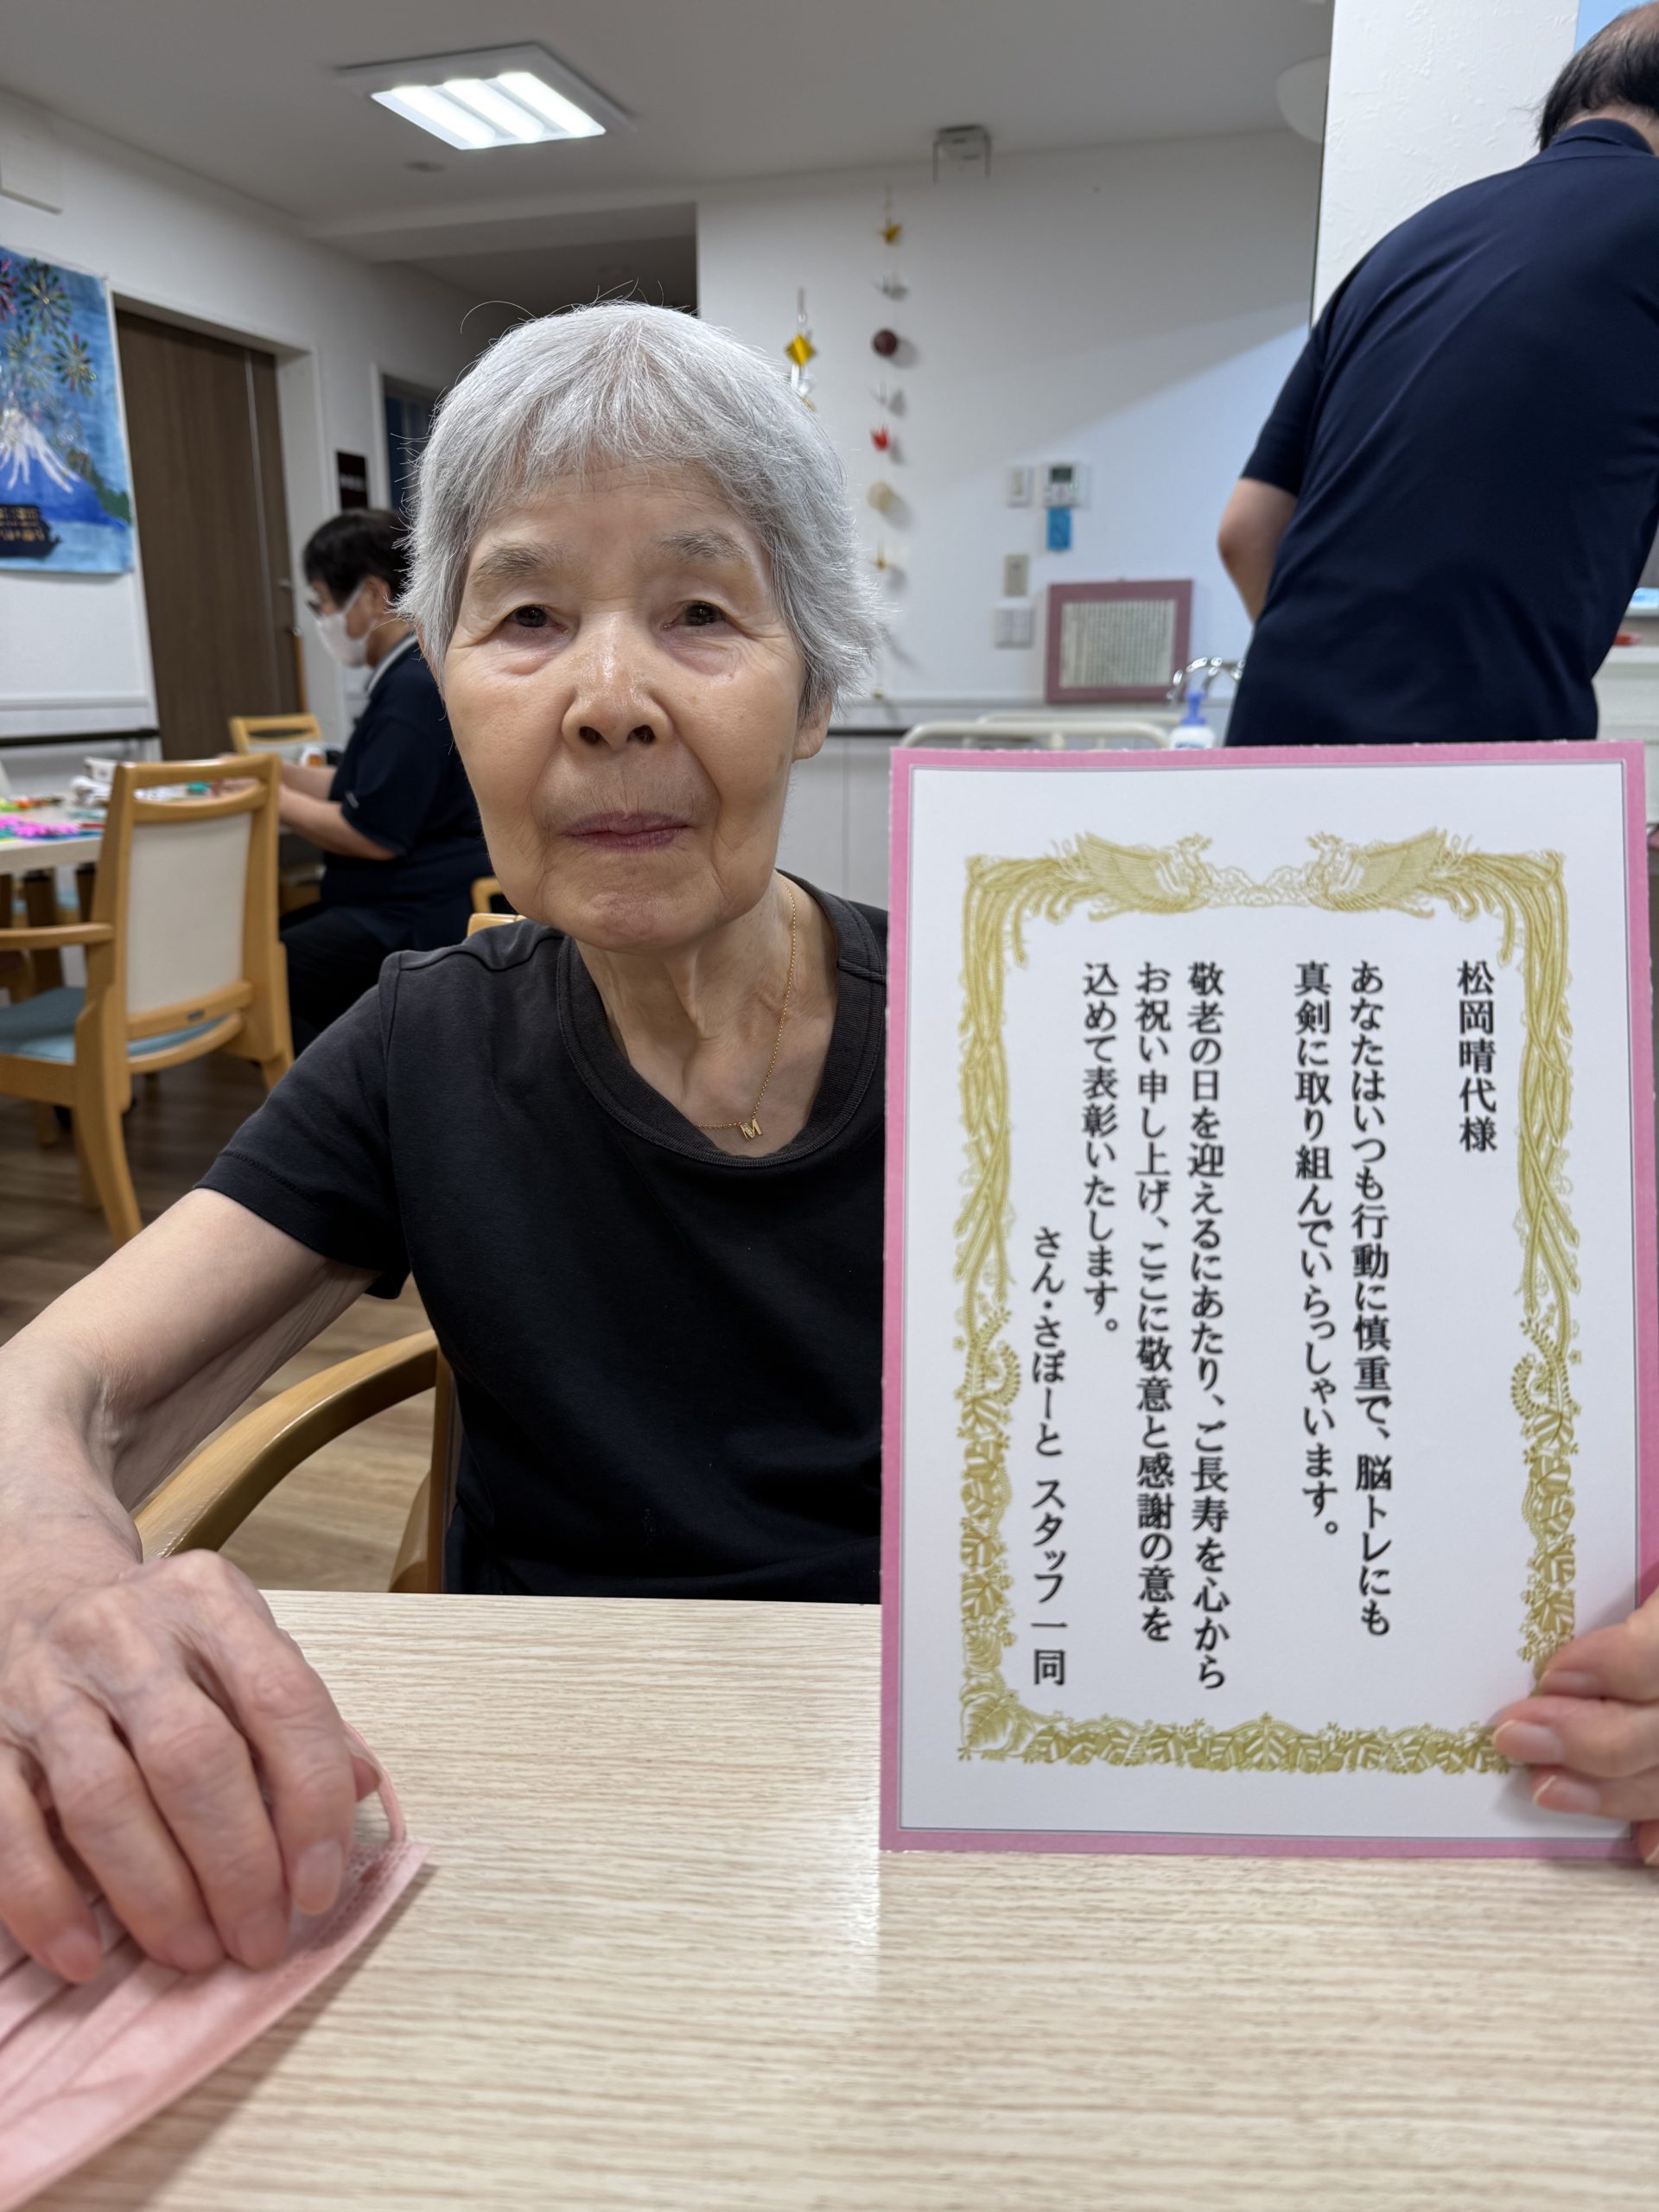 松岡晴代様
あなたはいつも行動に慎重で、脳トレにも
真剣に取り組んでいらっしゃいます。
敬老の日を迎えるにあたり、ご長寿を心から
お祝い申し上げ、ここに敬意と感謝の意を
込めて表彰いたします。
さん・さぽーと スタッフ一同
M